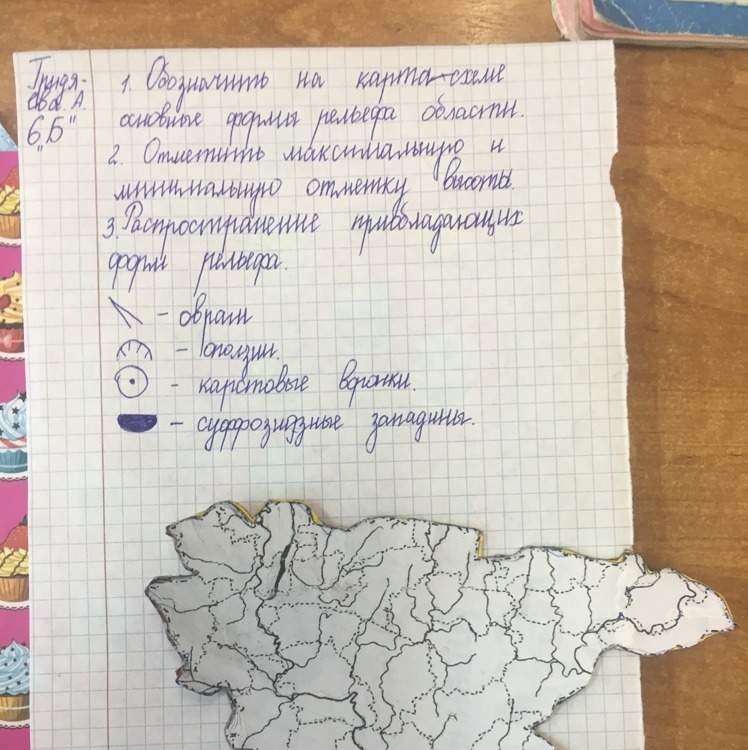 Грудя-
ова А.
6„Б"
1. Обозначить на карта-схеме
основные формы рельефа области.
2. Отметить максимальную и
минимальную отметку высоты.
3. Распространение приобладающих
форм рельефа.
- овраги
- оползни.
- карстовые воронки.
- суффозидзные западины.